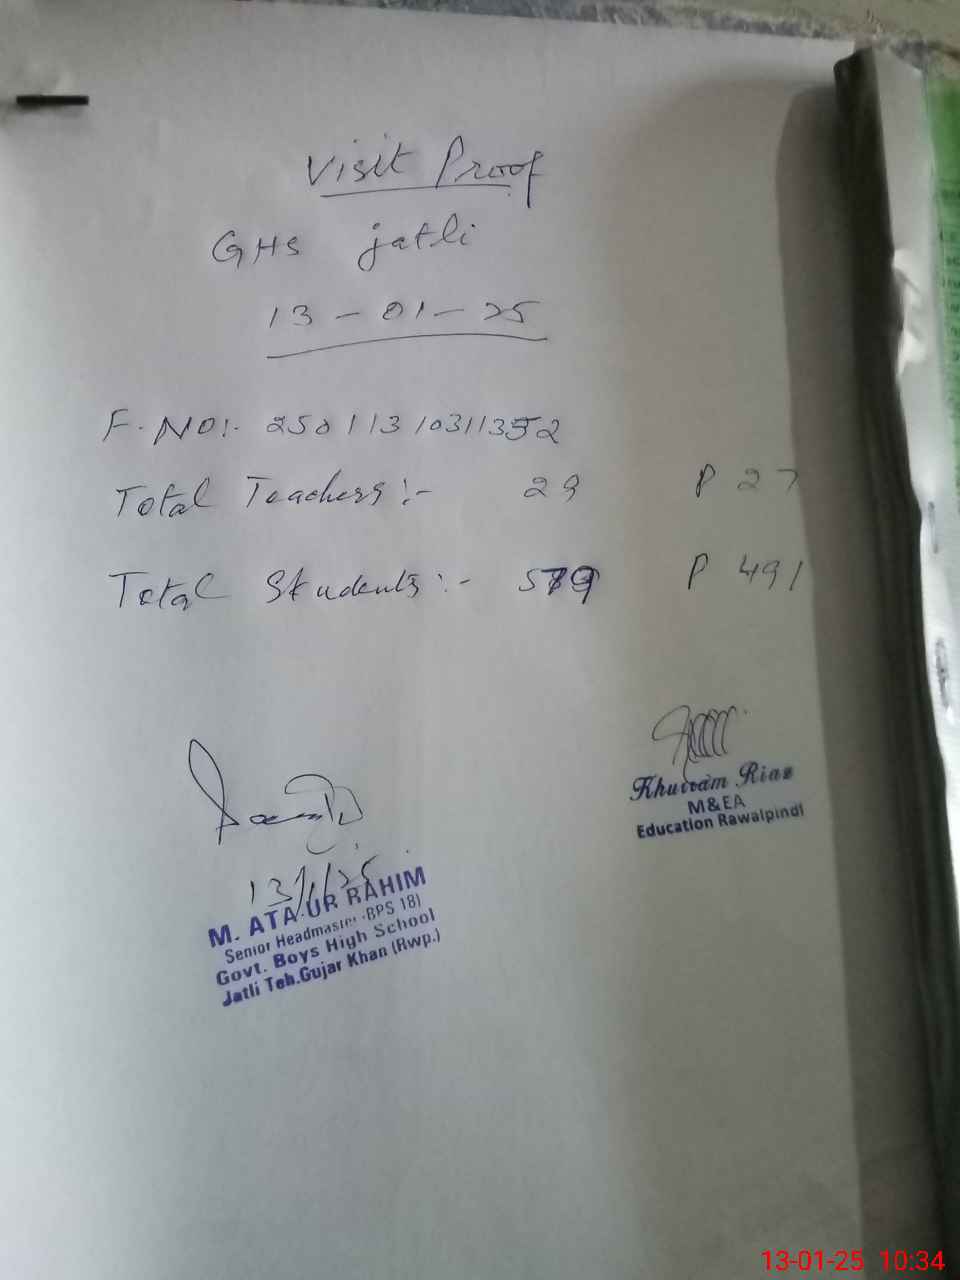 Visit Proof
GHS jatli
13-01-25
F.NO:- 25011310311352
Total Teachers:- 29 P 27
Total Students:- 579 P 491
Khurram Riaz
M&EA
Education Rawalpindi
13/1/25
M. ATA-UR RAHIM
Senior Headmaster (BPS 18)
Govt. Boys High School
Jatli Teh.Gujar Khan (Rwp.)
13-01-25 10:34